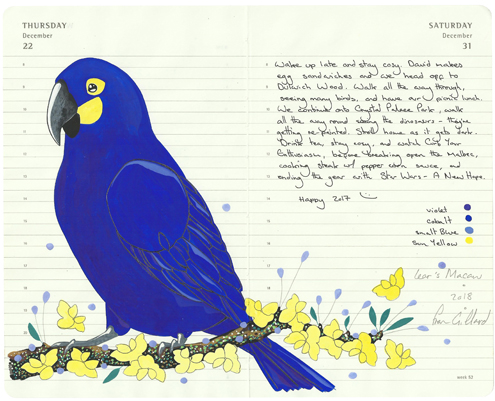 THURSDAY
December
22
SATURDAY
December
31
Wake up late and stay cosy. David makes
egg sandwiches and we head off to
Dulwich Wood. Walk all the way through,
seeing many birds, and have our picnic lunch.
We continue onto Crystal Palace Park, walk
all the way round along the dinosaurs - they're
getting re-painted. Stroll home as it gets dark.
Drink tea, stay cosy, and watch Curb Your
Enthusiasm, before breaking open the Malbec,
cooking steak w/ pepper corn sauce, and
ending the year with Star Wars - A New Hope.
Happy 2017
violet
cobalt
smalt Blue
sun Yellow
Lear's Macaw
2018
week 52